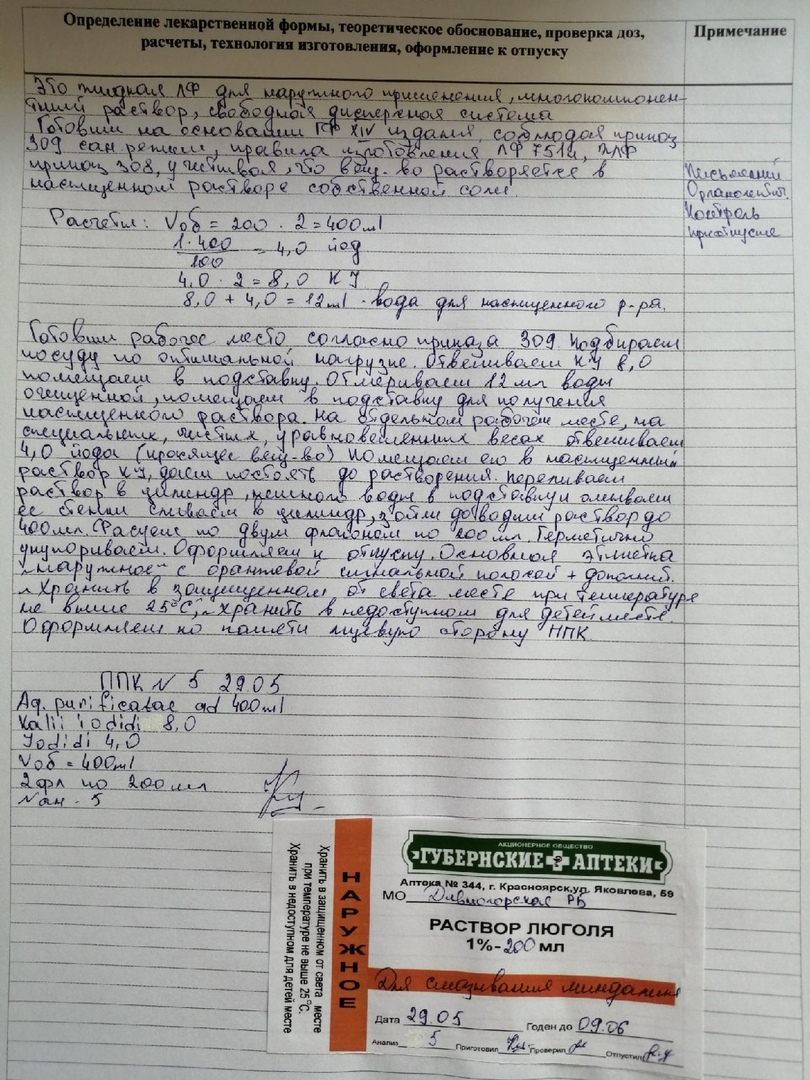 Определение лекарственной формы, теоретическое обоснование, проверка доз,
расчеты, технология изготовления, оформление к отпуску
Примечание
Это жидкая ЛФ для наружного применения, многокомпонен-
тный раствор, свободная дисперсная система
Готовим на основании ГФ XIV издания, соблюдая приказ
309 сан.режим, правила изготовления ЛФ 751н,
приказ 308, учитывая, что вещ-во растворяется в
насыщенном растворе собственной соли
Письменный
Органолептит.
Контроль
при отпуске
Расчеты: Vоб = 200 · 2 = 400 ml
1·400
100
= 4,0 йод
4,0 · 2 = 8,0 КJ
8,0 + 4,0 = 12 ml · вода для насыщенного р-ра.
Готовим рабочее место согласно приказа 309. Подбираем
посуду по оптимальной нагрузке. Отвешиваем КJ 8,0
помещаем в подставку. Отмериваем 12 мл воды
очищенной, помещаем в подставку для получения
насыщенного раствора. На отдельном рабочем месте, на
специальных, чистых, уравновешенных весах отвешиваем
4,0 йода (красящее вещ-во) Помещаем его в насыщенный
раствор КJ, даем постоять до растворения. Переливаем
раствор в цилиндр, немного воды в подставку и омываем
ее стенки сливаем в цилиндр, затем доводим раствор до
400 мл. Фасуем по двум флаконам по 200 мл. Герметично
укупориваем. Оформляем к отпуску. Основная этикетка
„Наружное" с оранжевой сигнальной полосой + дополнит.
„Хранить в защищенном от света месте при температуре
не выше 25°С", „Хранить в недоступном для детей месте.
Оформляем по памяти лицевую сторону ППК.
ППК N 5 29.05
Aq. purificatae ad 400 ml
Kalii iodidi 8,0
Jodidi 4,0
Vоб = 400 ml
2 фл по 200 мл
Nан - 5
Хранить в защищенном от света месте
при температуре не выше 25°С.
Хранить в недоступном для детей месте
НАРУЖНОЕ
АКЦИОНЕРНОЕ ОБЩЕСТВО
ГУБЕРНСКИЕ АПТЕКИ
Аптека № 344, г. Красноярск, ул. Яковлева, 59
МО Дивногорская РБ
РАСТВОР ЛЮГОЛЯ
1% - 200 мл
Для смазывания миндалин
Дата 29.05 Годен до 09.06
Анализ 5 Приготовил Проверил Отпустил